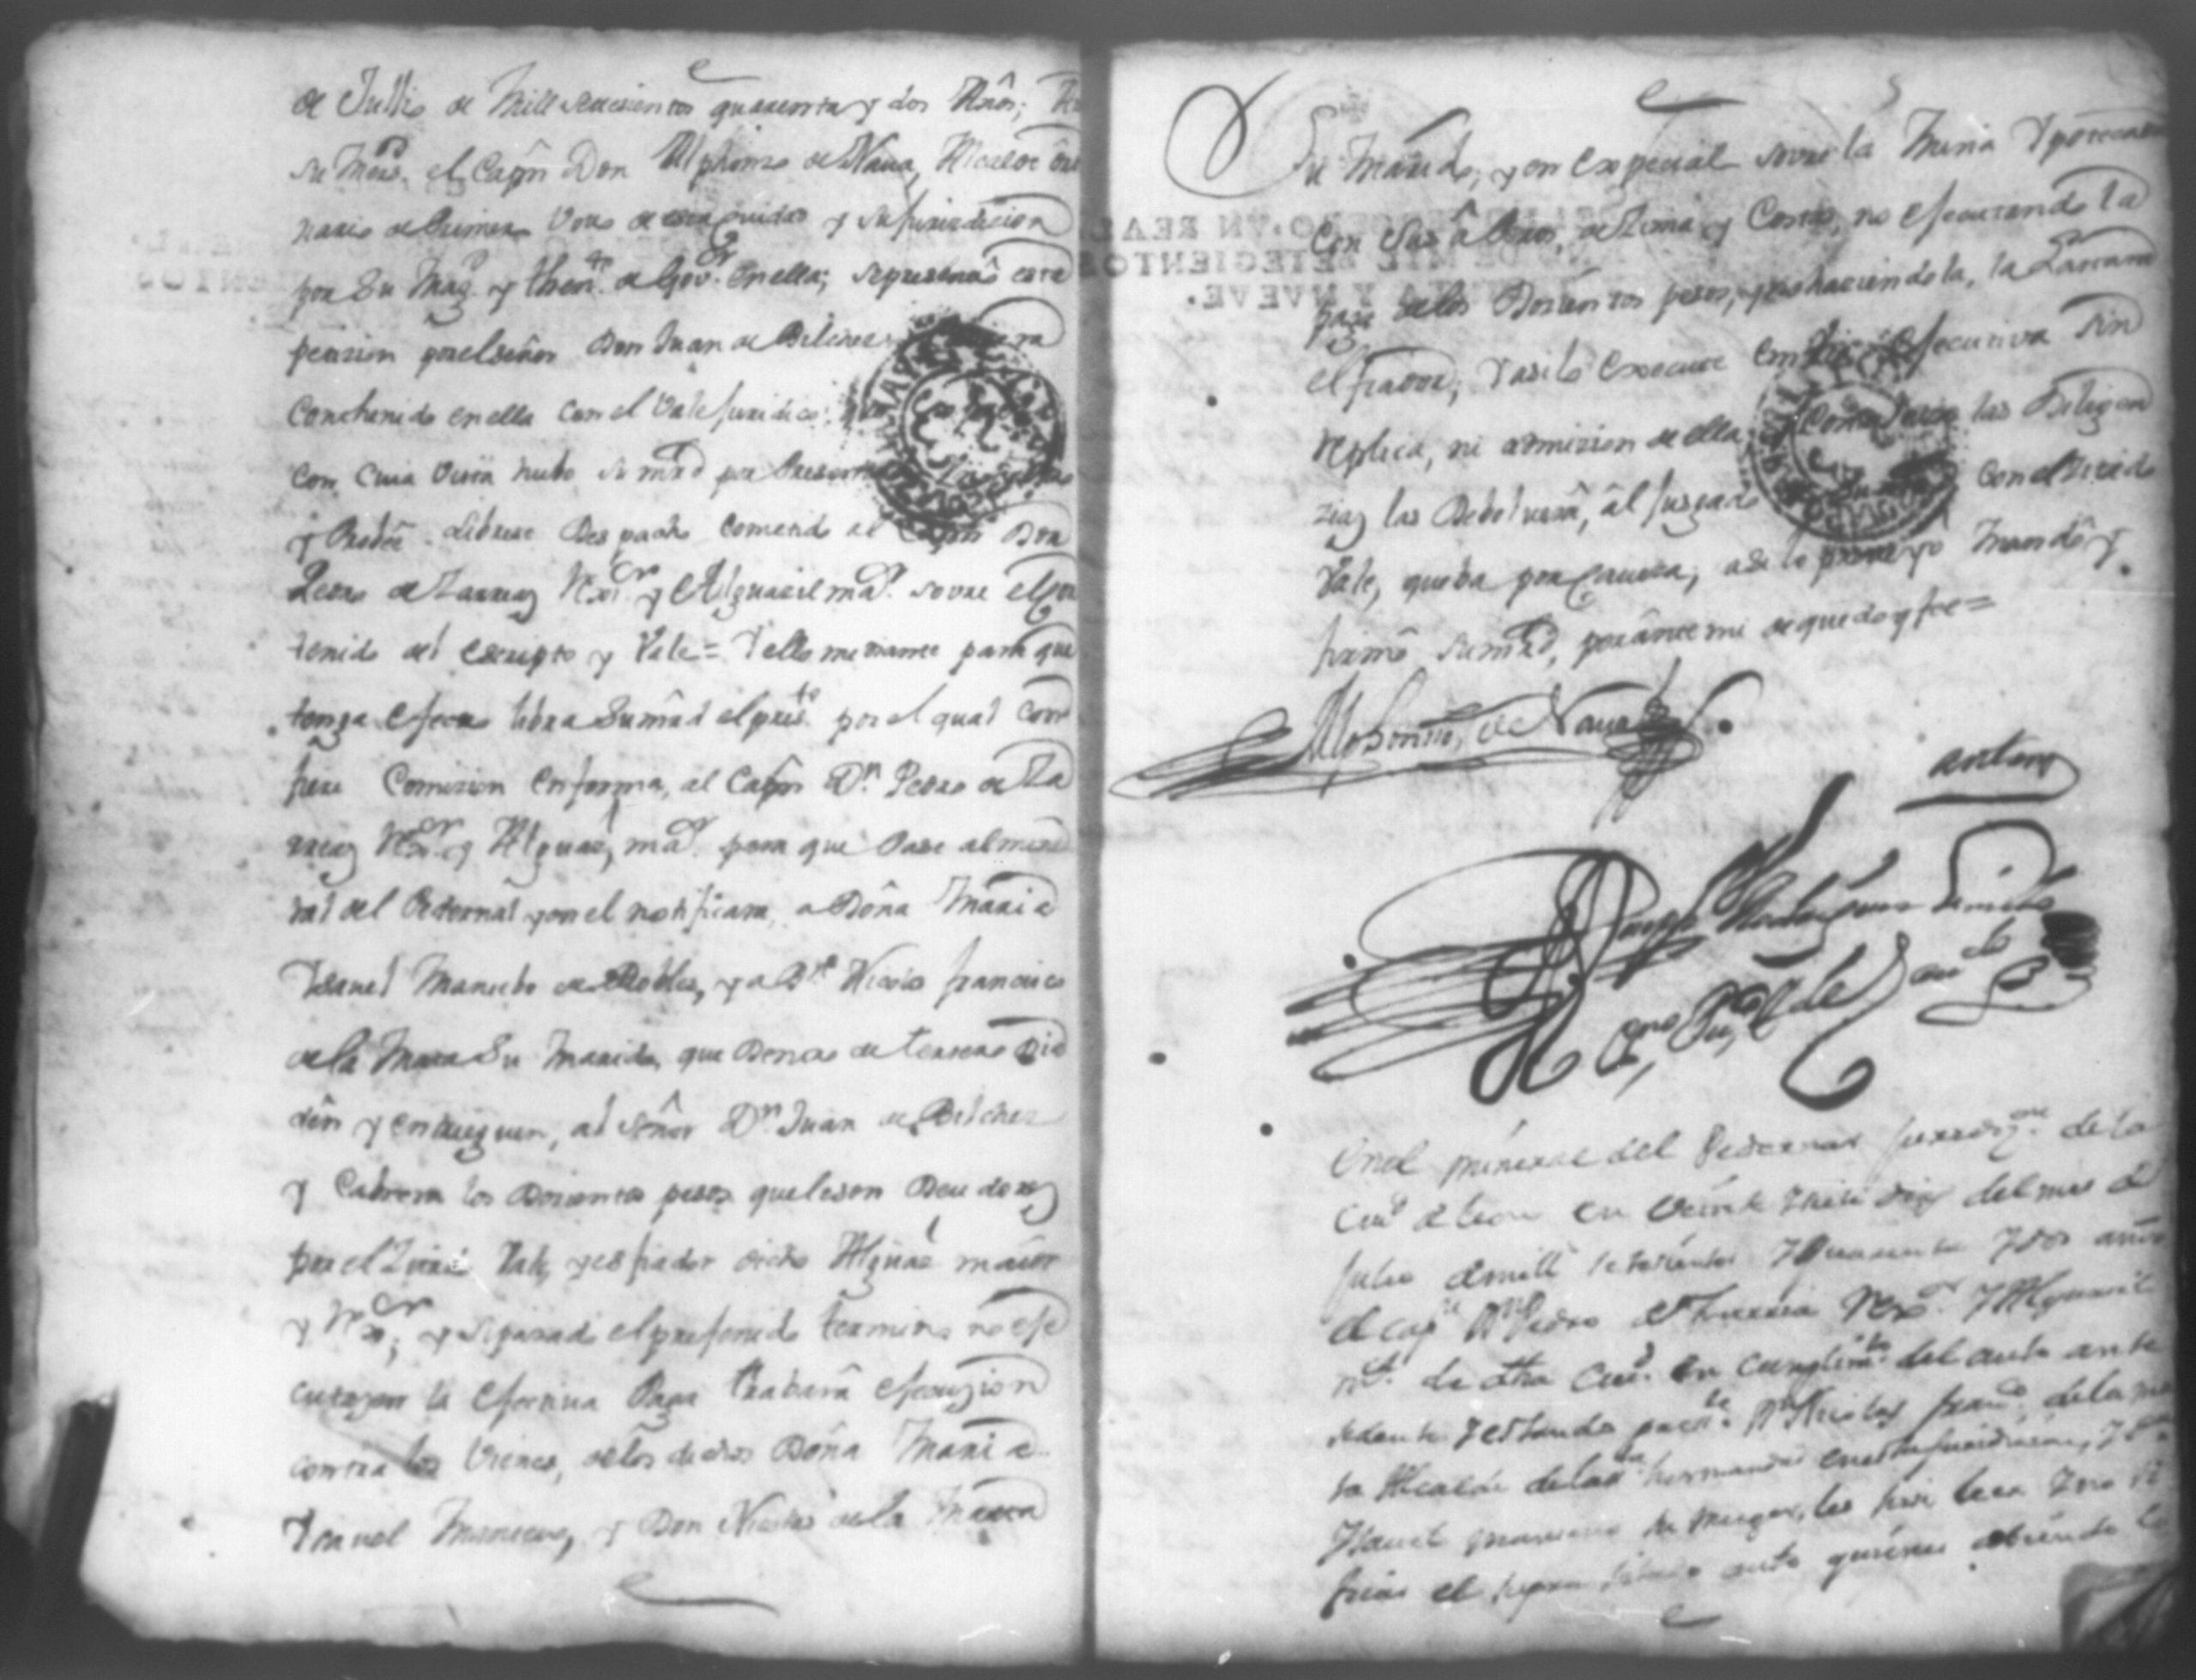 de Jullio de Mill setesientos quarenta y dos Años;
su Mrd. el Capn Don Alphonso de Nava, Alcalde ordi
nario de Primer Voto de esta ciudad y su jurisdicion
por Su Mag. y thente. de Gov.or en ella; se presento esta
petision por el señor Don Juan de Belches
Conthenido en ella con el Vale juridico
Con Cuia Vista hubo su mrd por Presentado
y Probee. Librese Despacho Cometido al Capn Don
Pedro de Larrea, Rxr. y Alguasil mar. sovre el Con
tenido del escripto y Vale = Y ello mediante para que
tenga efecto libra Su mrd el preste. por el qual Con
fiere Comision en forma, al Capn Dn. Pedro de La
rrea, Rxr. y Alguasl, mar. para que Pase al mine
ral del Pedernal y en el notificara, a Doña Maria
Ysavel Manuebo de Robles, y a Dn. Nicolas francisco
de la Mata Su Marido, que Dentro de tersero Dia
den y entreguen, al señor Dn. Juan de Belches
y Cabrera los Dosientos pesos que le son Deudores
por el Vale, y es fiador dicho Alguasl maior
y Rxr; y si pasado el prefenido termino no efe
cutasen la efectiva Paga trabará efecuzion
contra los Vienes, de los dichos Doña Maria
Ysavel Manuevo, y Don Nicolas de la Mata
Su Marido, y en expecial sovre la Mina Ypotecada
Con sus Desima y Costas, no efecutando la
paga de los Dosientos pesos, y no haciendola, la
el fiador, Y asi lo Execute efecutiva sin
replica, ni admision de ella las Diligen
zias las Debolverá, al Jusgado Con el
Vale, que ba por Caveza; asi lo proveyo Mandó y
firmó su mrd, por ante mi de que doy fee =
Alphonso de Nava
ante my
Joseph Rodriguez
Sno. Puco. de
En el mineral del Pedernal jurisdizon. de la
Ciud de Leon en veinte y siete dias del mes de
Julio de mill setesientos y Quarenta y dos años
el Capn Dn Pedro de Larrea Rxor. y Alguasil
mr. de dha Ciud. En Cumplimto. del auto ante
sedente y estando preste. Dn Nicolas franco de la ma
ta Alcalde de la sta hermandad en esta jurisdision, y Da
Ysavel manuevo su muger, les hise leer y no ti
ficar el auto quienes abiendo lo